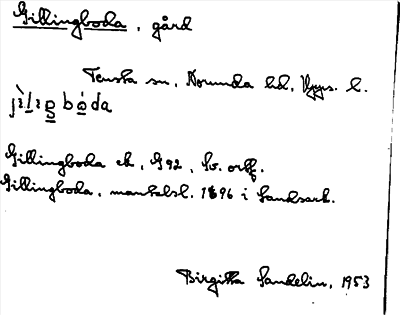 Gillingboda, gård
Tensta sn, Norunda hd, Upps. l.
Gillingboda ek, G92, Sv. ortf.
Gillingboda, mantalsl. 1896 i Landsark.
Birgitta Sandelin, 1953